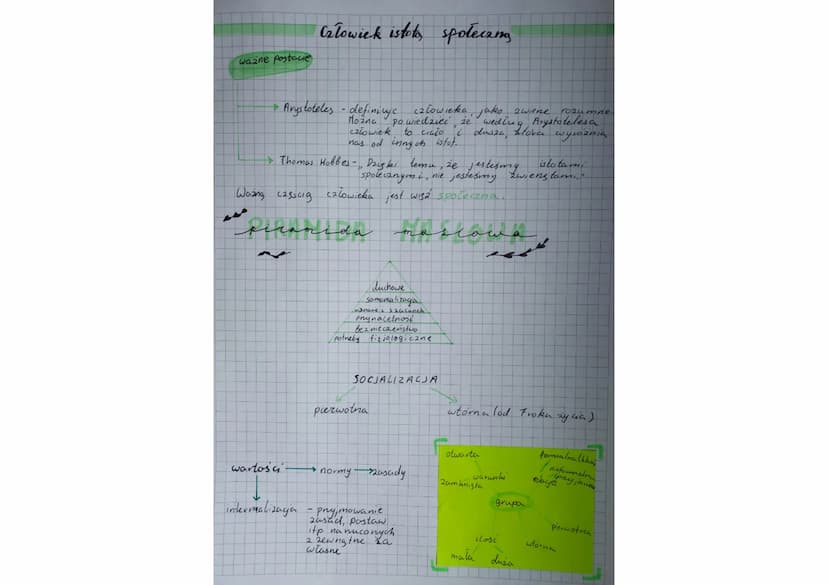 Człowiek istotą społeczną
ważne postacie
Arystoteles - definiuje człowieka, jako zwierzę rozumne.
Można powiedzieć, że według Arystotelesa
człowiek to ciało i dusza, która wyróżnia
nas od innych istot.
Thomas Hobbes - "Dzięki temu, że jesteśmy istotami
społecznymi, nie jesteśmy zwierzętami."
Ważną częścią człowieka jest więź społeczna.
PIRAMIDA MASLOWA
piramida masłowa
duchowe
samorealizacja
uznanie i szacunek
przynależność
bezpieczeństwo
potrzeby fizjologiczne
SOCJALIZACJA
pierwotna
wtórna (od 7 roku życia)
wartości normy zasady
internalizacja - przyjmowanie
zasad, postaw
itp narzuconych
z zewnątrz za
własne
otwarta
zamknięta
warunki
formalna
nieformalna
więzi
grupa
pierwotna
wtórna
ilość
mała duża